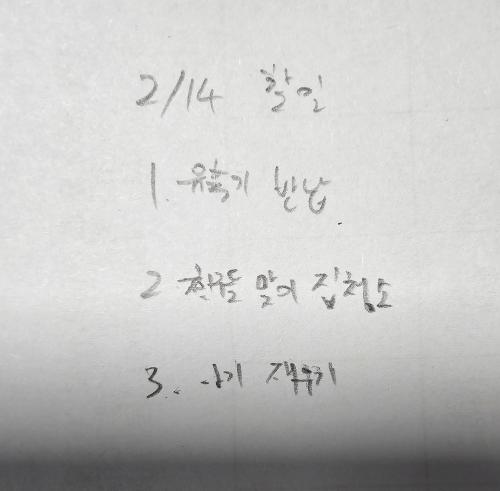 2/14 할일
1. 유축기 반납
2 친구들 맞이 집청소
3. 아기 재우기